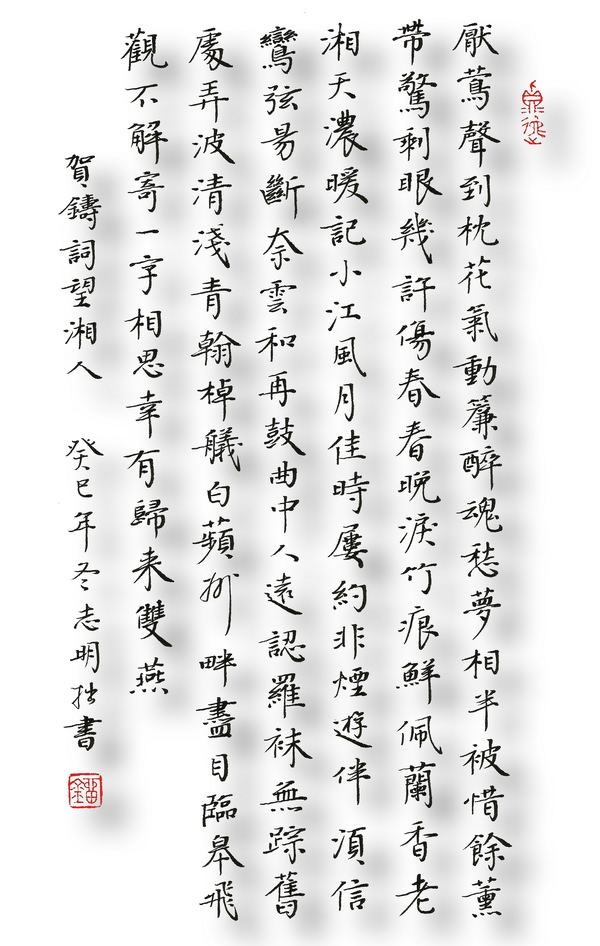 厭鶯聲到枕花氣動簾醉魂愁夢相半被惜餘薰
帶驚剩眼幾許傷春春晚淚竹痕鮮佩蘭香老
湘天濃暖記小江風月佳時屢約非煙遊伴須信
鸞弦易斷奈雲和再鼓曲中人遠認羅袜無踪舊
處弄波清淺青翰棹艤白蘋洲畔盡目臨皋飛
觀不解寄一字相思幸有歸来雙燕
賀鑄詞望湘人 癸巳年冬志明拙書